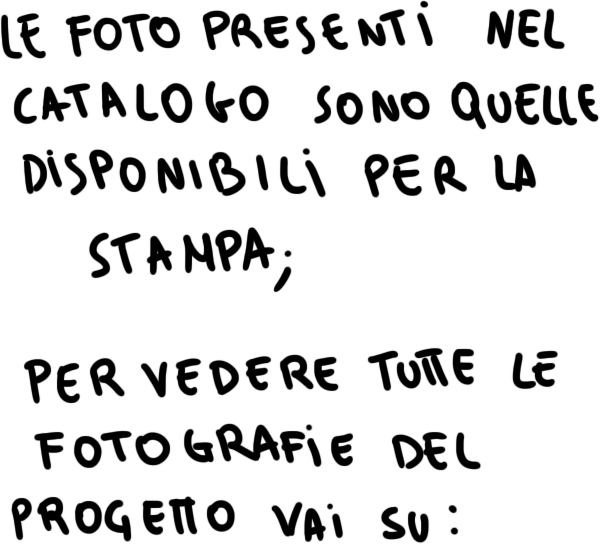 LE FOTO PRESENTi NEL
CATALOGO SONO QUELLE
DiSPONIBILi PER LA
STAMPA;
PER VEDERE TUTTE LE
FOTOGRAFiE DEL
PROGETTO VAi SU: